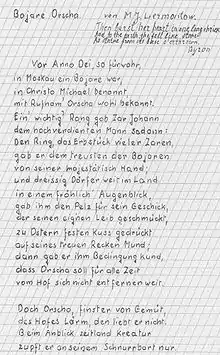 Bojare Orscha.
von M. J. Liermontow.
Then burst her heart in one long shriek
And to the earth she fell like stone
Or statue from its base o'erthrown
Byron
Vor Anno Dei, so fürwahr,
in Moskau ein Bojare war,
in Christo Michael benannt,
mit Rufnam' Orscha wohl bekannt.
Ein wichtig' Rang gab Zar Johann
dem hochverdienten Mann sodann:
Den Ring, das Erbstück vieler Zaren,
gab er dem treusten der Bojaren
von seiner majestät'schen Hand;
und dreissig Dörfer weit im Land.
in einem fröhlich' Augenblick,
gab ihm den Pelz für sein Geschick,
der seinen eignen Leib geschmückt,
zu Ostern festen Kuss gedrückt
auf seines treuen Recken Mund;
dann gab er ihm Bedingung kund,
dass Orscha soll für alle Zeit
vom Hof sich nicht entfernen weit.
Doch Orscha, finster von Gemüt,
des Hofes Lärm, den liebt er nicht.
Beim Anblick seitland Kreatur
zupft er an seinem Schnurrbart nur.